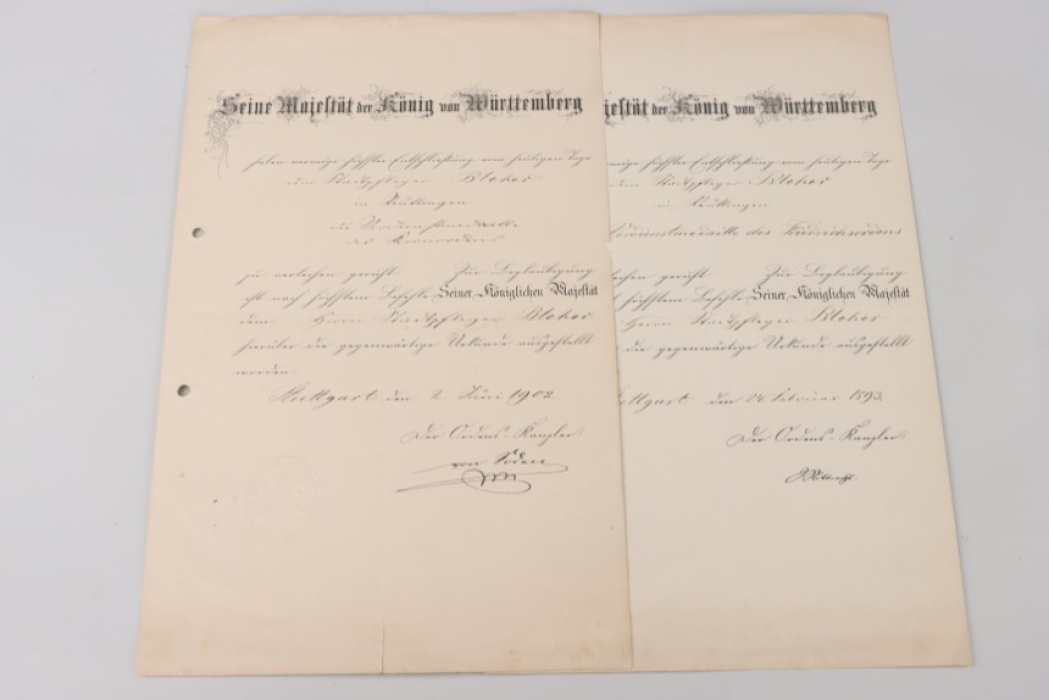 Seine Majestät der König von Württemberg
haben vermöge höchster Entschließung vom heutigen Tage
dem Stadtpfleger
in Reutlingen
die Verdienstmedaille
des Kronordens
zu verleihen geruht. Zur Beglaubigung
ist nach höchstem Befehle Seiner Königlichen Majestät
dem Herrn Stadtpfleger
hierüber die gegenwärtige Urkunde ausgestellt
worden.
Stuttgart den 2. Juni 1902.
Der Ordens-Kanzler:
von Soden
jestät der König von Württemberg
höchster Entschließung vom heutigen Tage
dem Stadtpfleger
in Reutlingen
des Friedrichsordens
geruht. Zur Beglaubigung
höchstem Befehle Seiner Königlichen Majestät
Herrn Stadtpfleger
die gegenwärtige Urkunde ausgestellt
den 24. Februar 1893.
Der Ordens-Kanzler: